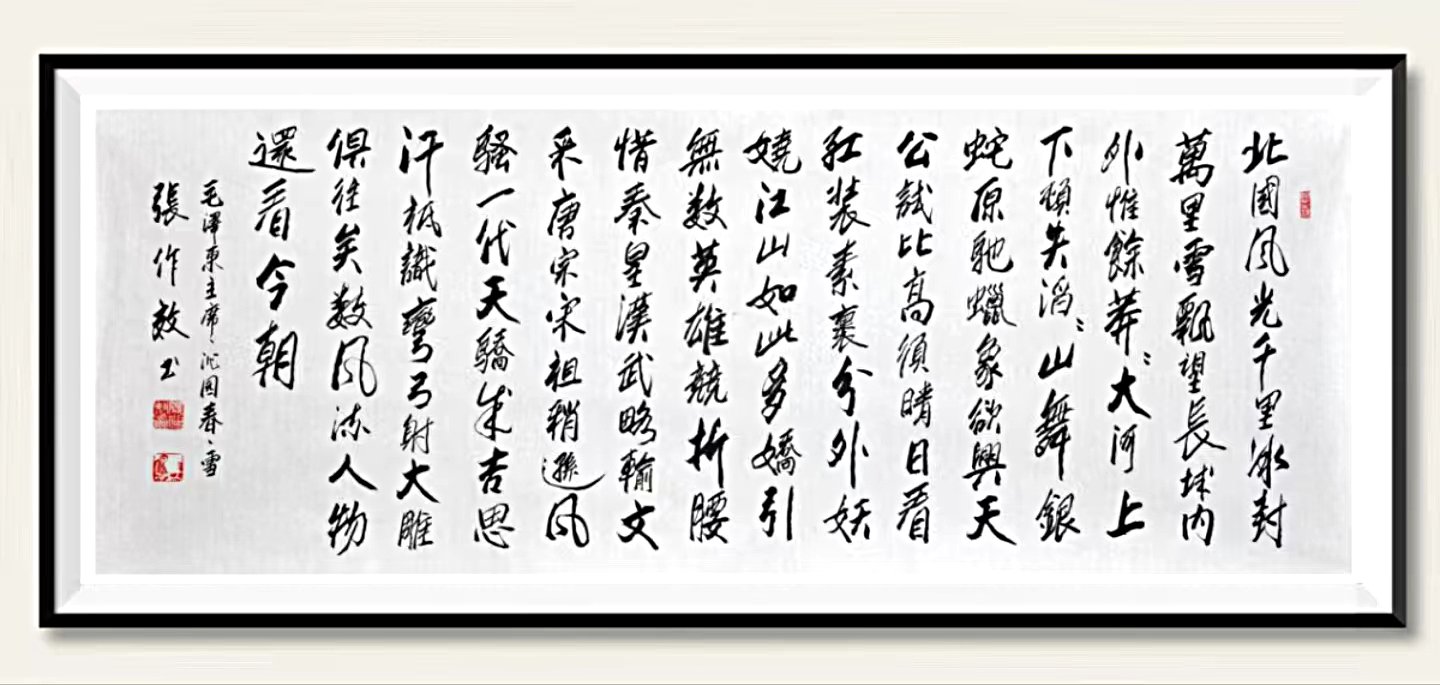 北國风光千里冰封
萬里雪飄望長城内
外惟餘莽〻大河上
下頓失滔〻山舞銀
蛇原馳蠟象欲與天
公試比高須晴日看
红装素裹分外妖
嬈江山如此多嬌引
無数英雄競折腰
惜秦皇漢武略輸文
采唐宗宋祖稍遜风
騷一代天驕成吉思
汗祇識彎弓射大雕
俱往矣数风流人物
還看今朝
毛澤東主席、沁园春、雪
張作 书